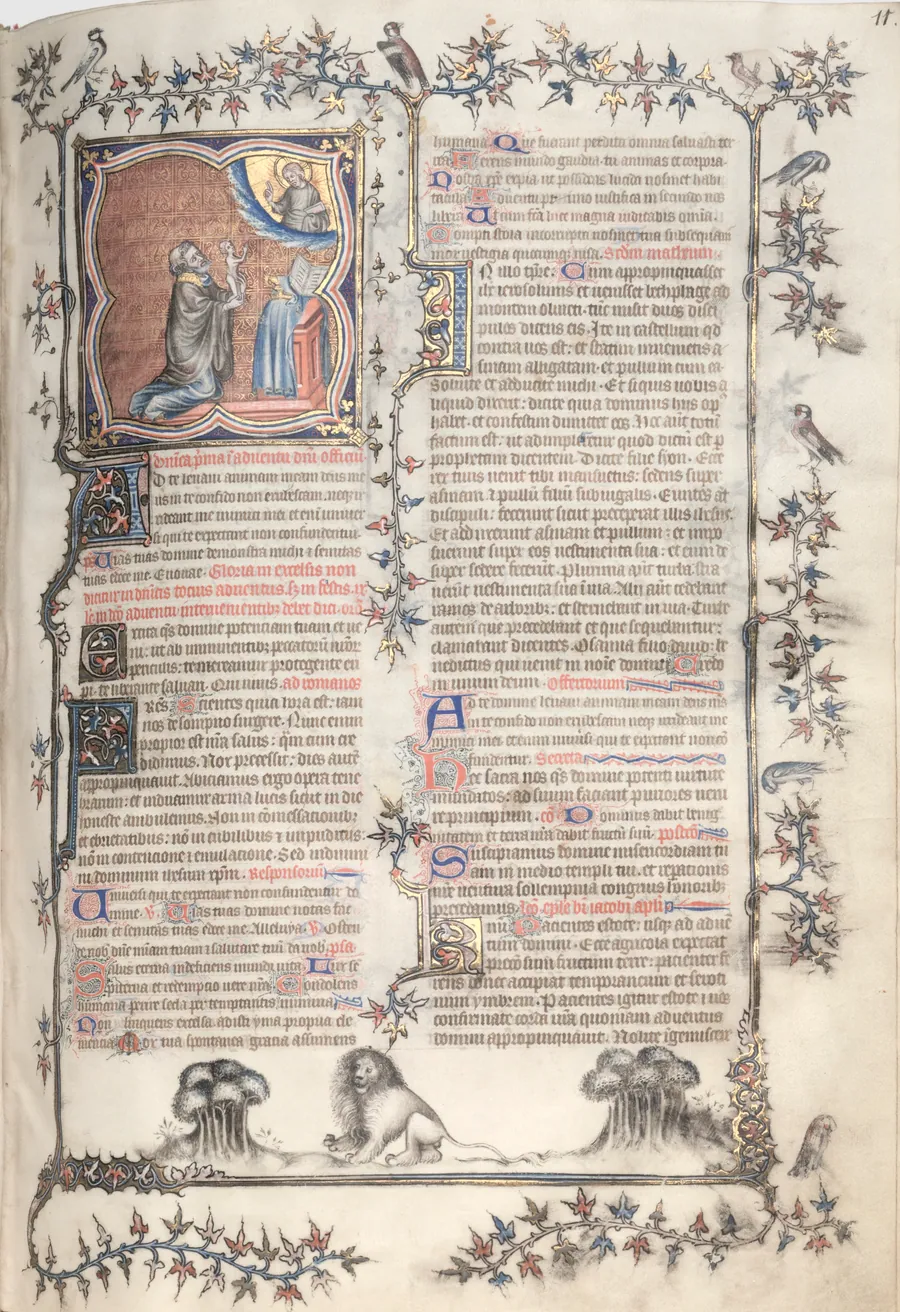 11.
Dnica p̃ma ĩ adventu dnĩ officiũ
D te levavi animam meam deus me
us in te confido non erubescam. neq; ir
rideant me inimici mei et eni universi
si qui te expectant non confundentur.
Vias tuas domine demonstra michi ⁊ semitas
tuas edoce me. Euouae. Gloria in excelsis non
dicitur in dnicis tocius adventus
xcita q̃s domine potenciam tuam et ve
ni: ut ab imminentib; peccatorũ nr̃or̃
periculis: te mereamur protegente eri
pi. te liberante salvari. Qui vivis. ad romanos
Res Scientes quia hora est: iam
nos de sompno surgere. Nunc enim
propior est nr̃a salus: q̃m cum cre
didimus. Nox precessit: dies autẽ
appropinquavit. Abiciamus ergo opera tene
brarum: et induamur arma lucis sicut in die
honeste ambulemus. Non in comessationib;
et ebrietatibus: nõ in cubilibus ⁊ impudiciis:
nõ in contencione ⁊ emulatione. Sed induimi
ni dominum ihesum xp̃m. Responsoriũ
Universi qui te expectant non confundentur do
mine. v̄ Vias tuas domine notas fac
michi et semitas tuas edoce me. Alleluya. v̄ Osten
de nob̃ dñe mĩam tuam ⁊ salutare tuũ da nob̃. p̃sa.
Salus eterna indeficiens mundi vita Lux se
piterna et redempcio vere nr̃a Condolens
humana perire secla per temptantis numina
Non linquens excelsa adisti yma propria cle
mencia Mox tua spontanea gracia assumens
humana Que fuerant perdita omnia salvasti ter
rea Ferens mundo gaudia. tu animas et corpora
Nostra xp̃e expia ut possideas lucida nosmet habi
tacula Adventu primo iustifica in secundo nos
libera Ut cum fc̃a luce magna iudicabis om̃ia.
Compti stola incorrupta nosmet tua subsequamur
mox vestigia quocumq; visa. Scd̃m matheum.
N illo tp̃re: Cum appropinquasset
ih̃c ierosolimis et venisset bethphage ad
montem oliveti. tũc misit duos disci
pulos dicens eis. Ite in castellum q̃d
contra vos est: et statim invenietis a
sinam alligatam. et pullum cum ea.
Solvite et adducite michi. Et siquis vobis a
liquid dixerit: dicite quia dominus hijs op̃
habet. et confestim dimittet eos. Hoc aũt totũ
factum est: ut adimpleretur quod dictũ est p
prophetam dicentem. Dicite filie syon. Ecce
rex tuus venit tibi mansuetus: sedens super
asinam ⁊ pullũ filiũ subiugalis. Euntes aũt
discipuli: fecerunt sicut preceperat illis ih̃esus.
Et adduxerunt asinam et pullum: et impo
suerunt super eos vestimenta sua: et eum de
super sedere fecerũt. Plurima aũt turba stra
verũt vestimenta sua ĩ via. Alii aũt cedebant
ramos de arborib;: et sternebant in via. Turbe
autem que precedebant et que sequebantur:
clamabant dicentes. Osanna filio david: be
nedictus qui venit in noĩe domini. Credo
in unum deum. Offertorium
Ad te domine levavi animam meam deus m̃s
in te confido non erubescam neq; irrideant me
inimici mei etenim universi qui te expectant non cõ
fundentur. Secreta
Hec sacra nos q̃s domine potenti virtute
mundatos: ad suum faciant puriores veni
re principium. cõ Dominus dabit benig
nitatem et terra nr̃a dabit fructũ suũ. postcõ
Suscipiamus domine misericordiam tu
am in medio templi tui. et reparationis
nr̃e ventura sollempnia congruis honorib;
precedamus. lcõ ep̃le bĩ iacobi ap̃li
mi Pacientes estote: usq; ad adven
tum domini. Ecce agricola expectat
preciosum fructum terre: pacienter fe
rens donec accipiat temporaneum et seroti
num ymbrem. Pacientes igitur estote ⁊ vos
confirmate corda vr̃a quoniam adventus
domini appropinquavit. Nolite ĩgemiscere